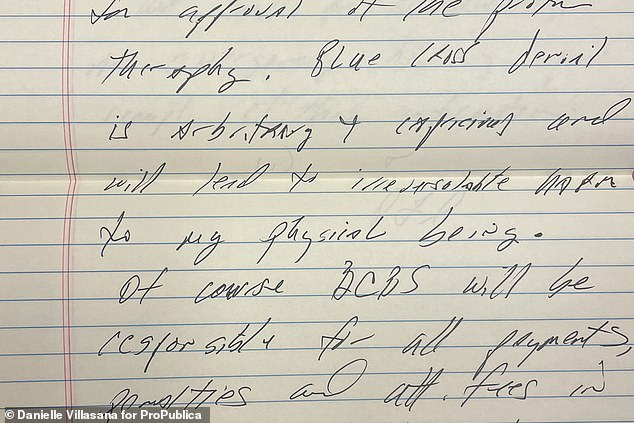 for approval of the proton
therapy. Blue Cross denial
is arbitrary & capricious and
will lead to irresolvable harm
to my physical being.
Of course BCBS will be
responsible for all payments,
penalties and att. fees in
© Danielle Villasana for ProPublica